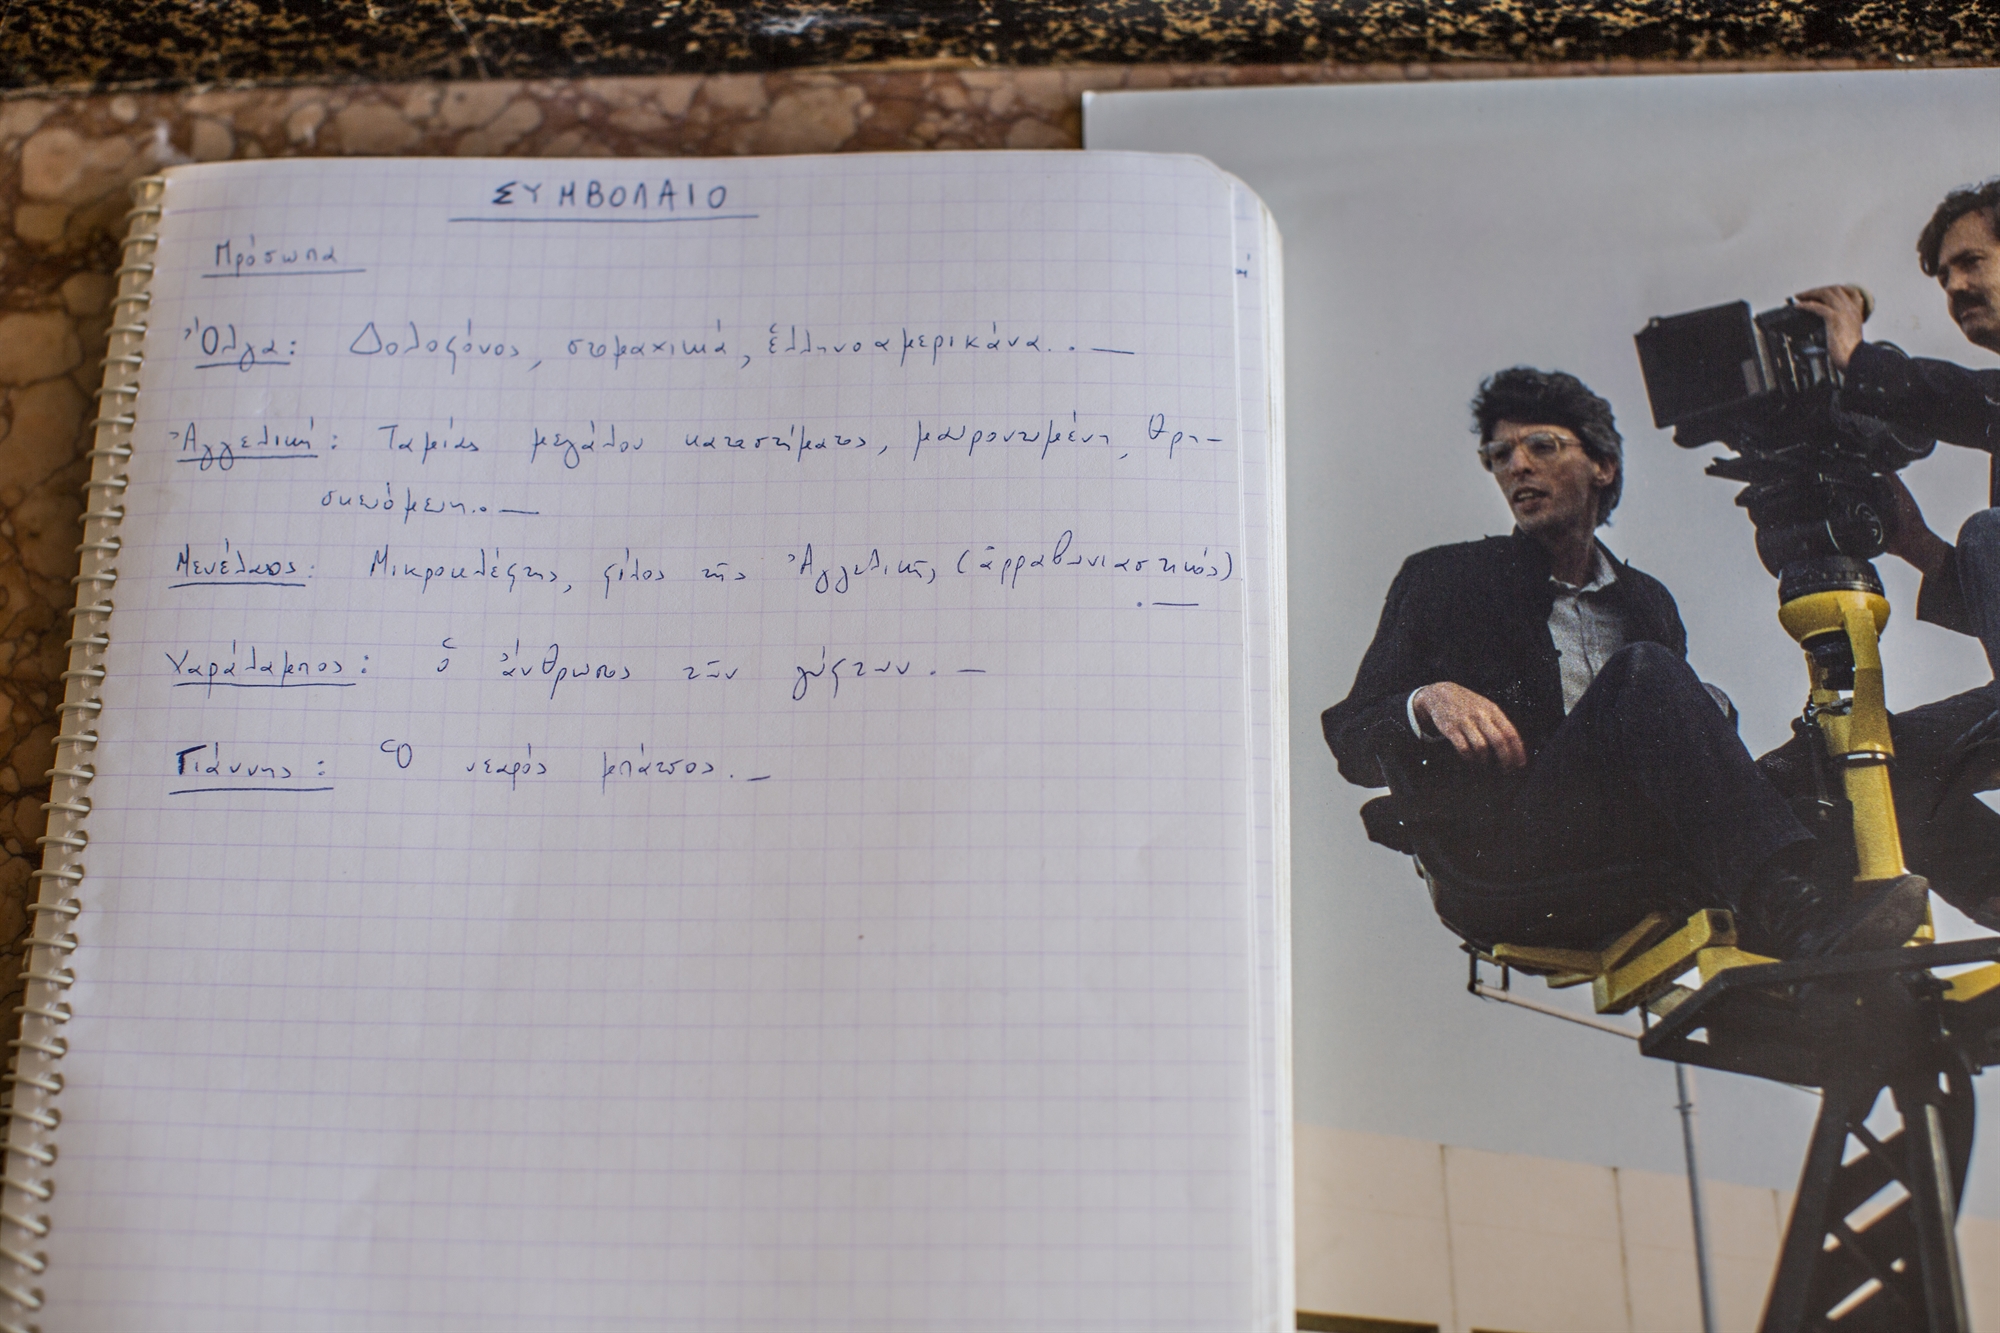 ΣΥΜΒΟΛΑΙΟ
Πρόσωπα
Ὄλγα: Δολοφόνος, στομαχικιά, ἑλληνοαμερικάνα. . —
Ἀγγελική: Ταμίας μεγάλου καταστήματος, μαυροντυμένη, θρη-
σκευόμενη. . —
Μενέλαος: Μικροκλέφτης, φίλος τῆς Ἀγγελικῆς (ἀρραβωνιαστικός)
. —
Χαράλαμπος: ὁ ἄνθρωπος τῶν γύφτων. —
Γιάννης: Ὁ νεαρός μπάτσος. —